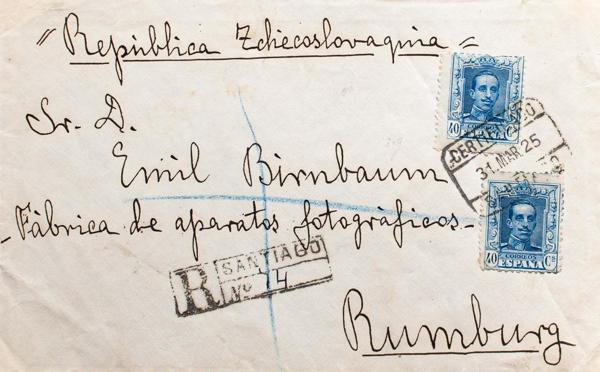 " República Zchecoslovaquia "
Sr. D.
Emil Birnbaum
- Fábrica de aparatos fotográficos -
Rumburg
40 Cs
CERTIFICADO
31. MAR. 25
CORREOS
ESPAÑA
40 Cs
R SANTIAGO
Nº 4